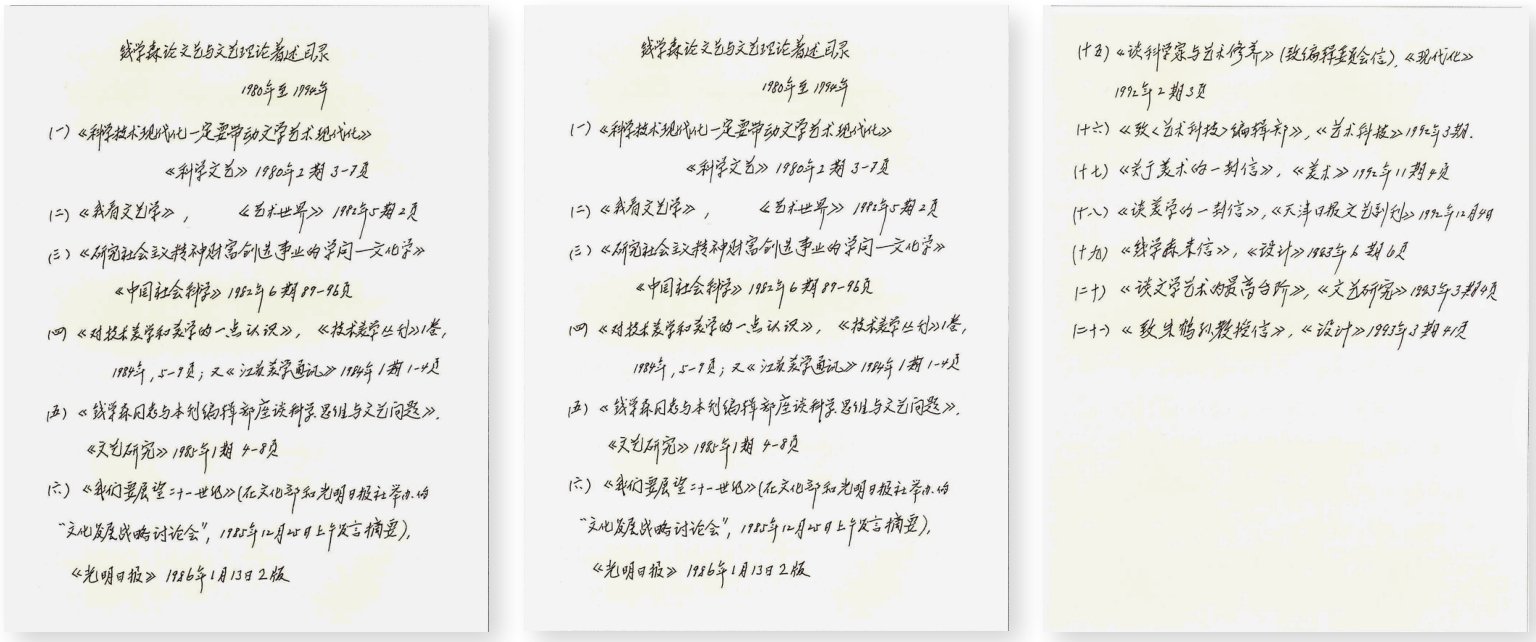 钱学森论文艺与文艺理论著述目录
1980年至1994年
(一)《科学技术现代化一定要带动文学艺术现代化》
《科学文艺》1980年2期3-7页
(二)《我看文艺学》, 《艺术世界》1982年5期2页
(三)《研究社会主义精神财富创造事业的学问—文化学》
《中国社会科学》1982年6期89-96页
(四)《对技术美学和美学的一点认识》, 《技术美学丛刊》1卷,
1984年,5-9页;又《江苏美学通讯》1984年1期1-4页
(五)《钱学森同志与本刊编辑部座谈科学、思维与文艺问题》.
《文艺研究》1985年1期 4-8页
(六)《我们要展望二十一世纪》(在文化部和光明日报社举办的
“文化发展战略讨论会”, 1985年12月25日上午发言摘要),
《光明日报》1986年1月13日2版
钱学森论文艺与文艺理论著述目录
1980年至1994年
(一)《科学技术现代化一定要带动文学艺术现代化》
《科学文艺》1980年2期3-7页
(二)《我看文艺学》, 《艺术世界》1982年5期2页
(三)《研究社会主义精神财富创造事业的学问—文化学》
《中国社会科学》1982年6期89-96页
(四)《对技术美学和美学的一点认识》, 《技术美学丛刊》1卷,
1984年,5-9页;又《江苏美学通讯》1984年1期1-4页
(五)《钱学森同志与本刊编辑部座谈科学、思维与文艺问题》.
《文艺研究》1985年1期 4-8页
(六)《我们要展望二十一世纪》(在文化部和光明日报社举办的
“文化发展战略讨论会”, 1985年12月25日上午发言摘要),
《光明日报》1986年1月13日2版
(十五)《谈科学家与艺术修养》(致编辑委员会信),《现代化》
1992年2期3页
(十六)《致〈艺术科技〉编辑部》,《艺术科技》1992年3期.
(十七)《关于美术的一封信》,《美术》1992年11期4页
(十八)《谈美学的一封信》,《天津日报文艺副刊》1992年12月4日
(十九)《钱学森来信》,《设计》1993年6期6页
(二十)《谈文学艺术的最高台阶》,《文艺研究》1993年3期4页
(二十一)《致朱鹤孙教授信》,《设计》1993年3期41页